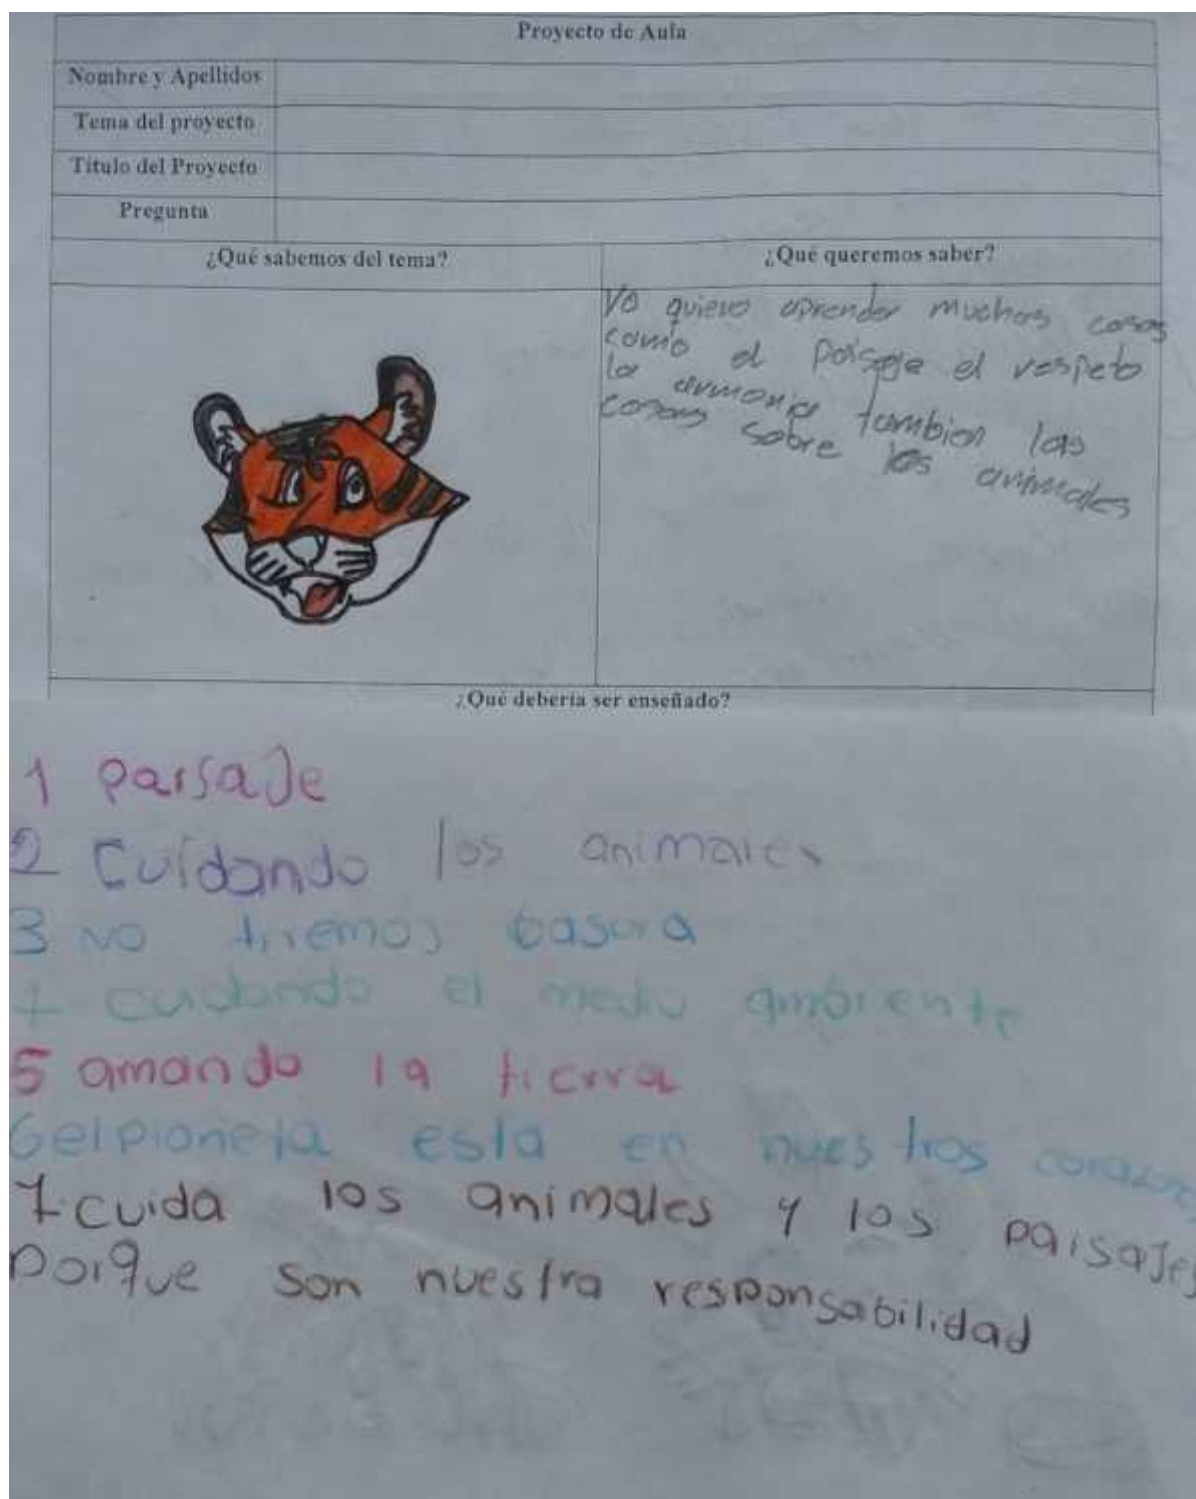 Proyecto de Aula
Nombre y Apellidos
Tema del proyecto
Título del Proyecto
Pregunta
¿Qué sabemos del tema?
¿Qué queremos saber?
Yo quiero aprender muchas cosas
como el paisaje el respeto
la armonia tambien las
cosas sobre los animales
¿Qué debería ser enseñado?
1 paisaje
2 Cuidando los animales
3 NO tiremos basura
4 cuidando el medio ambiente
5 amando la tierra
6 el planeta esta en nuestros corazones
7. cuida los animales y los paisajes
porque son nuestra responsabilidad